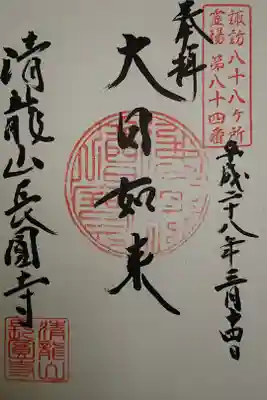 諏訪八十八ヶ所
霊場第八十四番
奉拝
平成二十八年三月十四日
大日如来
清龍山長圓寺
清龍山
長圓寺